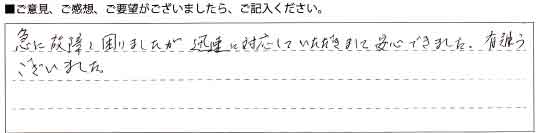 ■ご意見、ご感想、ご要望がございましたら、ご記入ください。
急に故障し困りましたが迅速に対応していただきまして安心できました。有難う
ございました。